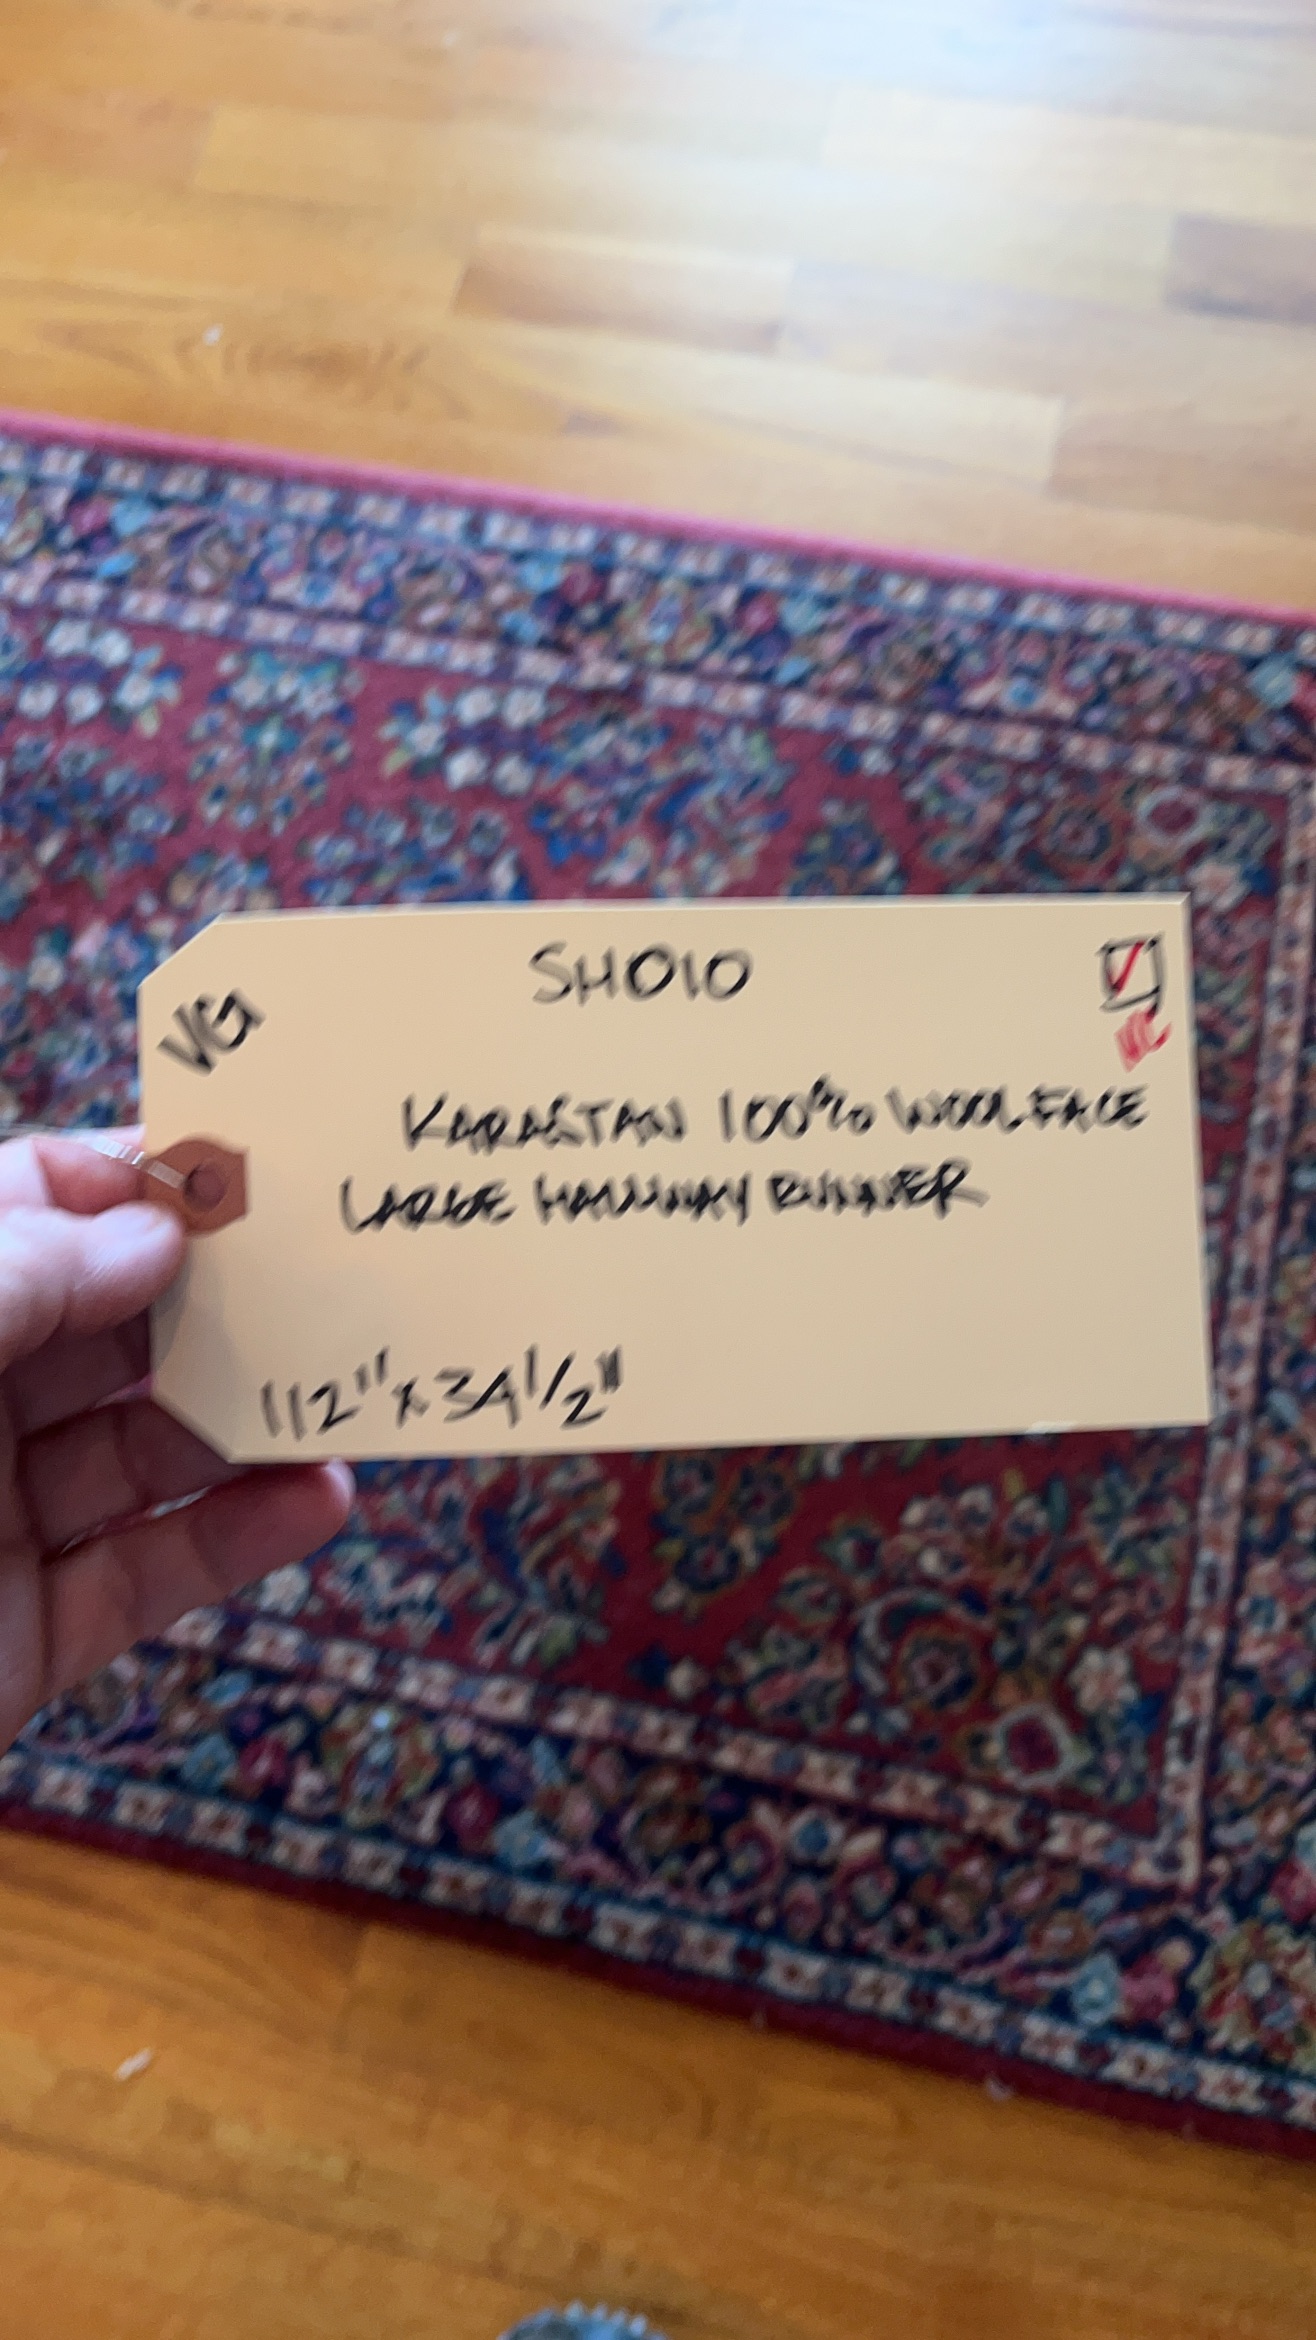 SH010
VG
KARASTAN 100% WOOL FACE
LARGE HALLWAY RUNNER
112" x 34 1/2"